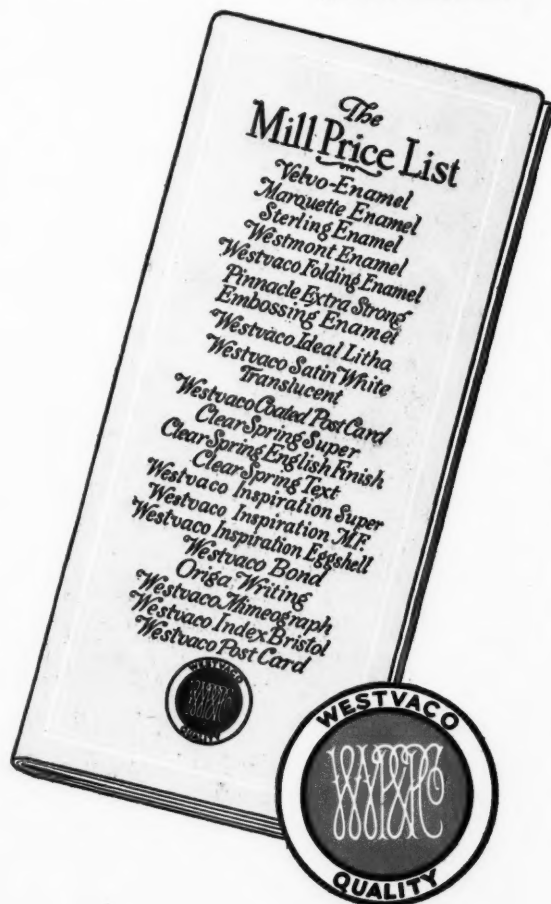 The
Mill Price List
Velvo-Enamel
Marquette Enamel
Sterling Enamel
Westmont Enamel
Westvaco Folding Enamel
Pinnacle Extra Strong
Embossing Enamel
Westvaco Ideal Litho
Westvaco Satin White
Translucent
Westvaco Coated Post Card
Clear Spring Super
Clear Spring English Finish
Clear Spring Text
Westvaco Inspiration Super
Westvaco Inspiration M.F.
Westvaco Inspiration Eggshell
Westvaco Bond
Origa Writing
Westvaco Mimeograph
Westvaco Index Bristol
Westvaco Post Card
WESTVACO
QUALITY
WESTVACO
WVP&PCO
QUALITY